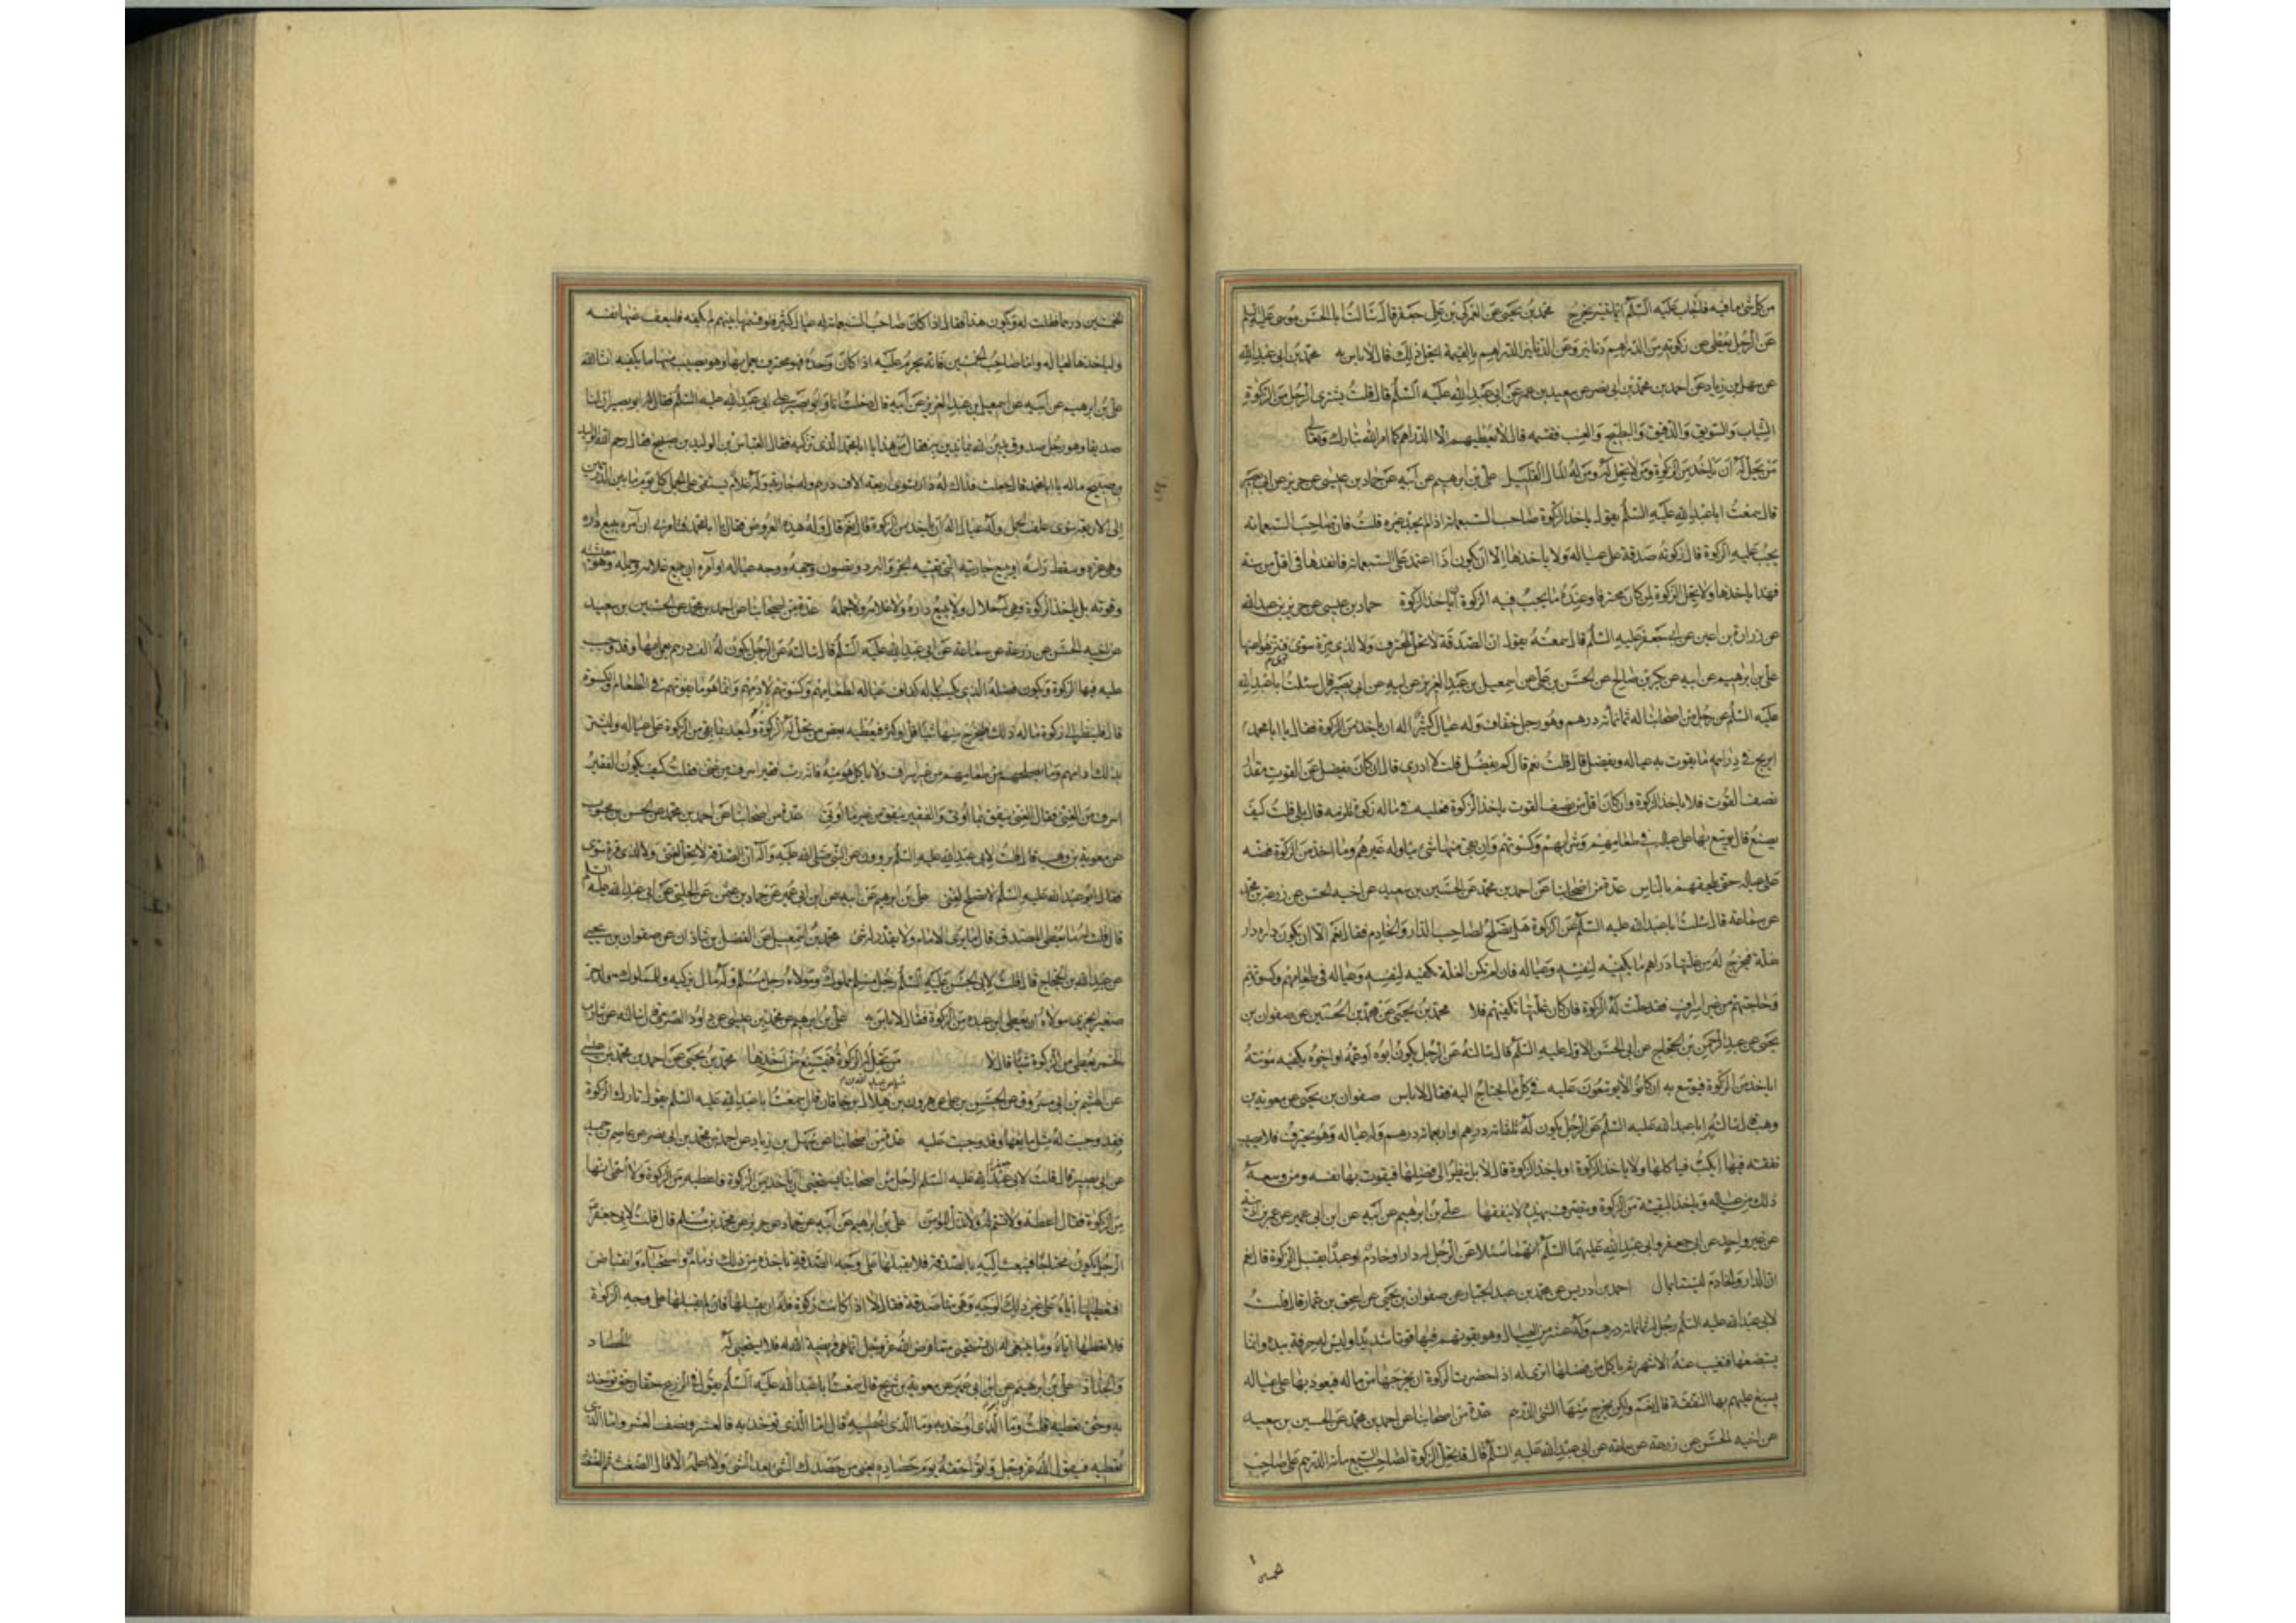 من كل شئ ما فيه فاجاب عليه السلم ايما تيسر يخرج محمد بن يحيى عن العمركي بن علي عن علي بن جعفر قال سالت ابا الحسن موسى عليه السلم
عن الرجل يعطى عن زكوته من الدراهم دنانير وعن الدنانير الدراهم بالقيمة ايحل ذلك قال لا باس به محمد بن ابي عبد الله
عن سهل بن زياد عن احمد بن محمد بن ابي نصر عن سعيد بن عمر عن ابي عبد الله عليه السلم قال قلت يشترى الرجل من الزكوة
الثياب والسويق والدقيق والبطيخ والعنب فقسمه قال لا يعطيهم الا الدراهم كما امر الله تبارك وتعالى
من يحل له ان ياخذ من الزكوة ومن لا يحل له ومن له المال القليل علي بن ابرهيم عن ابيه عن حماد بن عيسى عن حريز عن ابي بصير
قال سمعت ابا عبد الله عليه السلم يقول ياخذ الزكوة صاحب السبعمائة اذا لم يجد غيره قلت فان صاحب السبعمائة
يجب عليه الزكوة قال زكوته صدقة على عياله ولا ياخذها الا ان يكون اذا اعتمد على السبعمائة انفدها في اقل من سنة
فهذا ياخذها ولا يحل الزكوة لمن كان محترفا وعنده ما يجب فيه الزكوة ان ياخذ الزكوة حماد بن عيسى عن حريز بن عبد الله
عن زرارة بن اعين عن ابي جعفر عليه السلم قال سمعته يقول ان الصدقة لا تحل لمحترف ولا لذي مرة سوى فتنزهوا عنها
علي بن ابرهيم عن ابيه عن بكر بن صالح عن الحسن بن علي عن اسمعيل بن عبد العزيز عن ابيه عن ابي بصير قال سئلت ابا عبد الله
عليه السلم عن رجل من اصحابنا له ثمانمائة درهم وهو رجل خفاف وله عيال كثير اله ان ياخذ من الزكوة فقال يا ابا محمد
ايربح في دراهمه ما يقوت به عياله ويفضل قال قلت نعم قال كم يفضل قلت لا ادري قال ان كان يفضل عن القوت مقدار
نصف القوت فلا ياخذ الزكوة وان كان اقل من نصف القوت ياخذ الزكوة فعليه في ماله زكوة تلزمه قال بلى قلت كيف
يصنع قال يوسع بها على عياله في طعامهم وشرابهم وكسوتهم وان بقى منها شئ يناوله غيرهم وما اخذ من الزكوة فضه
على عياله حتى يلحقهم بالناس عدة من اصحابنا عن احمد بن محمد عن الحسين بن سعيد عن اخيه الحسن عن زرعة بن محمد
عن سماعة قال سئلت ابا عبد الله عليه السلم عن الزكوة هل يصلح لصاحب الدار والخادم فقال نعم الا ان يكون داره دار
غلة فيخرج له من غلتها دراهم ما يكفيه لنفسه وعياله فان لم تكن الغلة تكفيه لنفسه وعياله في طعامهم وكسوتهم
وحاجتهم من غير اسراف فقد حلت له الزكوة فان كان غلتها تكفيهم فلا محمد بن يحيى عن محمد بن الحسين عن صفوان بن
يحيى عن عبد الرحمن بن الحجاج عن ابي الحسن الاول عليه السلم قال سالته عن الرجل يكون ابوه او عمه او اخوه يكفيه مؤنته
اياخذ من الزكوة فيوسع به ان كانوا لا يوسعون عليه في كل ما يحتاج اليه فقال لا باس صفوان بن يحيى عن معوية بن
وهب قال سالت ابا عبد الله عليه السلم عن الرجل يكون له ثلثمائة درهم او اربعمائة درهم وله عيال وهو يحترف فلا يصيب
نفقته فيها ايكب فياكلها ولا ياخذ الزكوة او ياخذ الزكوة قال لا بل ينظر الى فضلها فيقوت بها نفسه ومن وسعه
ذلك من عياله وياخذ البقية من الزكوة ويتصرف بهذه لا ينفقها علي بن ابرهيم عن ابيه عن ابن ابي عمير عن عمر بن اذينة
عن غير واحد عن ابي جعفر وابي عبد الله عليهما السلم انهما سئلا عن الرجل له دار او خادم او عبد ايقبل الزكوة قال نعم
ان الدار والخادم ليستا بمال احمد بن ادريس عن محمد بن عبد الجبار عن صفوان بن يحيى عن اسحق بن عمار قال قلت
لابي عبد الله عليه السلم رجل له ثمانمائة درهم وله عشر من العيال وهو يقوتهم فيها قوتا شديدا وليس له حرفة بيده وانما
يستبضعها فتغيب عنه الاشهر ثم ياكل من فضلها اترى له اذا حضرت الزكوة ان يخرجها من ماله فيعود بها على عياله
يسبغ عليهم بها النفقة قال نعم ولكن يخرج منها الشئ الدرهم عدة من اصحابنا عن احمد بن محمد عن الحسين بن سعيد
عن اخيه الحسن عن زرعة عن سماعة عن ابي عبد الله عليه السلم قال قد يحل الزكوة لصاحب السبع مائة الدرهم على صاحب
الخمسين درهما فقلت له وكيف يكون هذا فقال اذا كان صاحب السبعمائة له عيال كثير فلو قسمها بينهم لم تكفه فليعف عنها نفسه
ولياخذها لعياله واما صاحب الخمسين فانه يحرم عليه اذا كان وحده وهو محترف يعمل بها وهو يصيب منها ما يكفيه ان شاء الله
علي بن ابرهيم عن ابيه عن اسمعيل بن عبد العزيز عن ابيه قال دخلت انا وابو بصير على ابي عبد الله عليه السلم فقال له ابو بصير ان لنا
صديقا وهو رجل صدوق يدين الله بما ندين به فقال من هذا يا ابا محمد الذي تزكيه فقال العباس بن الوليد بن صبيح فقال رحم الله الوليد
بن صبيح ما له يا ابا محمد قال جعلت فداك له دار تسوى اربعة الاف درهم وله جارية وله غلام يستقى على الجمل كل يوم ما بين الدرهمين
الى الاربعة سوى علف الجمل وله عيال اله ان ياخذ من الزكوة قال نعم قال وله هذه العروض فقال يا ابا محمد فتامرني ان امره ببيع داره
وهي عزه ومسقط راسه او ببيع جاريته التي تقيه الحر والبرد وتصون وجهه ووجه عياله او امره ان يبيع غلامه وجمله وهو معيشته
وقوته بل ياخذ الزكوة وهي له حلال ولا يبيع داره ولا غلامه ولا جمله عدة من اصحابنا عن احمد بن محمد عن الحسين بن سعيد
عن اخيه الحسن عن زرعة عن سماعة عن ابي عبد الله عليه السلم قال سالته عن الرجل يكون له الف درهم يعمل بها وقد وجب
عليه فيها الزكوة ويكون فضله الذي يكسب بماله كفاف عياله لطعامهم وكسوتهم لا ادمهم وانما هو ما يقوتهم في الطعام والكسوة
قال فلينظر الى زكوة ماله ذلك فليخرج منها شيئا قل او كثر فيعطيه بعض من تحل له الزكوة وليعد بما بقى من الزكوة على عياله وليشتر
بذلك ادامهم وما يصلحهم من طعامهم من غير اسراف ولا ياكل هو منه فانه رب فقير اسرف من غنى فقلت كيف يكون الفقير
اسرف من الغنى فقال الغنى ينفق مما اوتى والفقير ينفق من غير ما اوتى عدة من اصحابنا عن احمد بن محمد عن الحسن بن محبوب
عن معوية بن وهب قال قلت لابي عبد الله عليه السلم يروون عن النبي صلى الله عليه وآله ان الصدقة لا تحل لغنى ولا لذى مرة سوى
فقال ابو عبد الله عليه السلم لا تصلح لغنى علي بن ابرهيم عن ابيه عن ابن ابي عمير عن حماد بن عثمن عن الحلبي عن ابي عبد الله عليه السلم
قال قلت له ما يعطى المصدق قال ما يرى الامام ولا يقدر له شئ محمد بن اسمعيل عن الفضل بن شاذان عن صفوان بن يحيى
عن عبد الله بن الحجاج قال قلت لابي الحسن عليه السلم رجل مسلم مملوك ومولاه رجل مسلم وله مال يزكيه وللمملوك ولد
صغير حر ايجزى مولاه ان يعطى ابن عبده من الزكوة فقال لا باس به علي بن ابرهيم عن محمد بن عيسى عن داود الصرمي قال سالته عن شارب
الخمر يعطى من الزكوة شيئا قال لا من تحل له الزكوة فيمتنع من اخذها محمد بن يحيى عن احمد بن محمد بن عيسى
عن الهيثم بن ابي مسروق عن الحسن بن علي عن هرون بن مسلم قال سمعت ابا عبد الله عليه السلم يقول تارك الزكوة
وقد وجبت له مثل مانعها وقد وجبت عليه عدة من اصحابنا عن سهل بن زياد عن احمد بن محمد بن ابي نصر عن عاصم بن حميد
عن ابي بصير قال قلت لابي جعفر عليه السلم الرجل من اصحابنا يستحيى ان ياخذ من الزكوة فاعطيه من الزكوة ولا اسمى له انها
من الزكوة فقال اعطه ولا تسم له ولا تذل المؤمن علي بن ابرهيم عن ابيه عن حماد عن حريز عن محمد بن مسلم قال قلت لابي جعفر
الرجل يكون محتاجا فيبعث اليه بالصدقة فلا يقبلها على وجه الصدقة ياخذه من ذلك ذمام واستحياء وانقباض
افنعطيها اياه على غير ذلك الوجه وهي منا صدقة فقال لا اذا كانت زكوة فله ان يقبلها فان لم يقبلها على وجه الزكوة
فلا تعطها اياه وما ينبغى له ان يستحيى مما فرض الله عز وجل انما هي فريضة الله له فلا يستحيى له الحصاد
والجداد علي بن ابرهيم عن ابن ابي عمير عن معوية بن شريح قال سمعت ابا عبد الله عليه السلم يقول في الزرع حقان حق تؤخذ
به وحق تعطيه قلت وما الذى اوخذ به وما الذى اعطيه قال اما الذى تؤخذ به فالعشر ونصف العشر واما الذى
تعطيه فيقول الله عز وجل وآتوا حقه يوم حصاده يعنى من حصدك الشئ بعد الشئ ولا اعلمه الا قال الضغث ثم الضغث